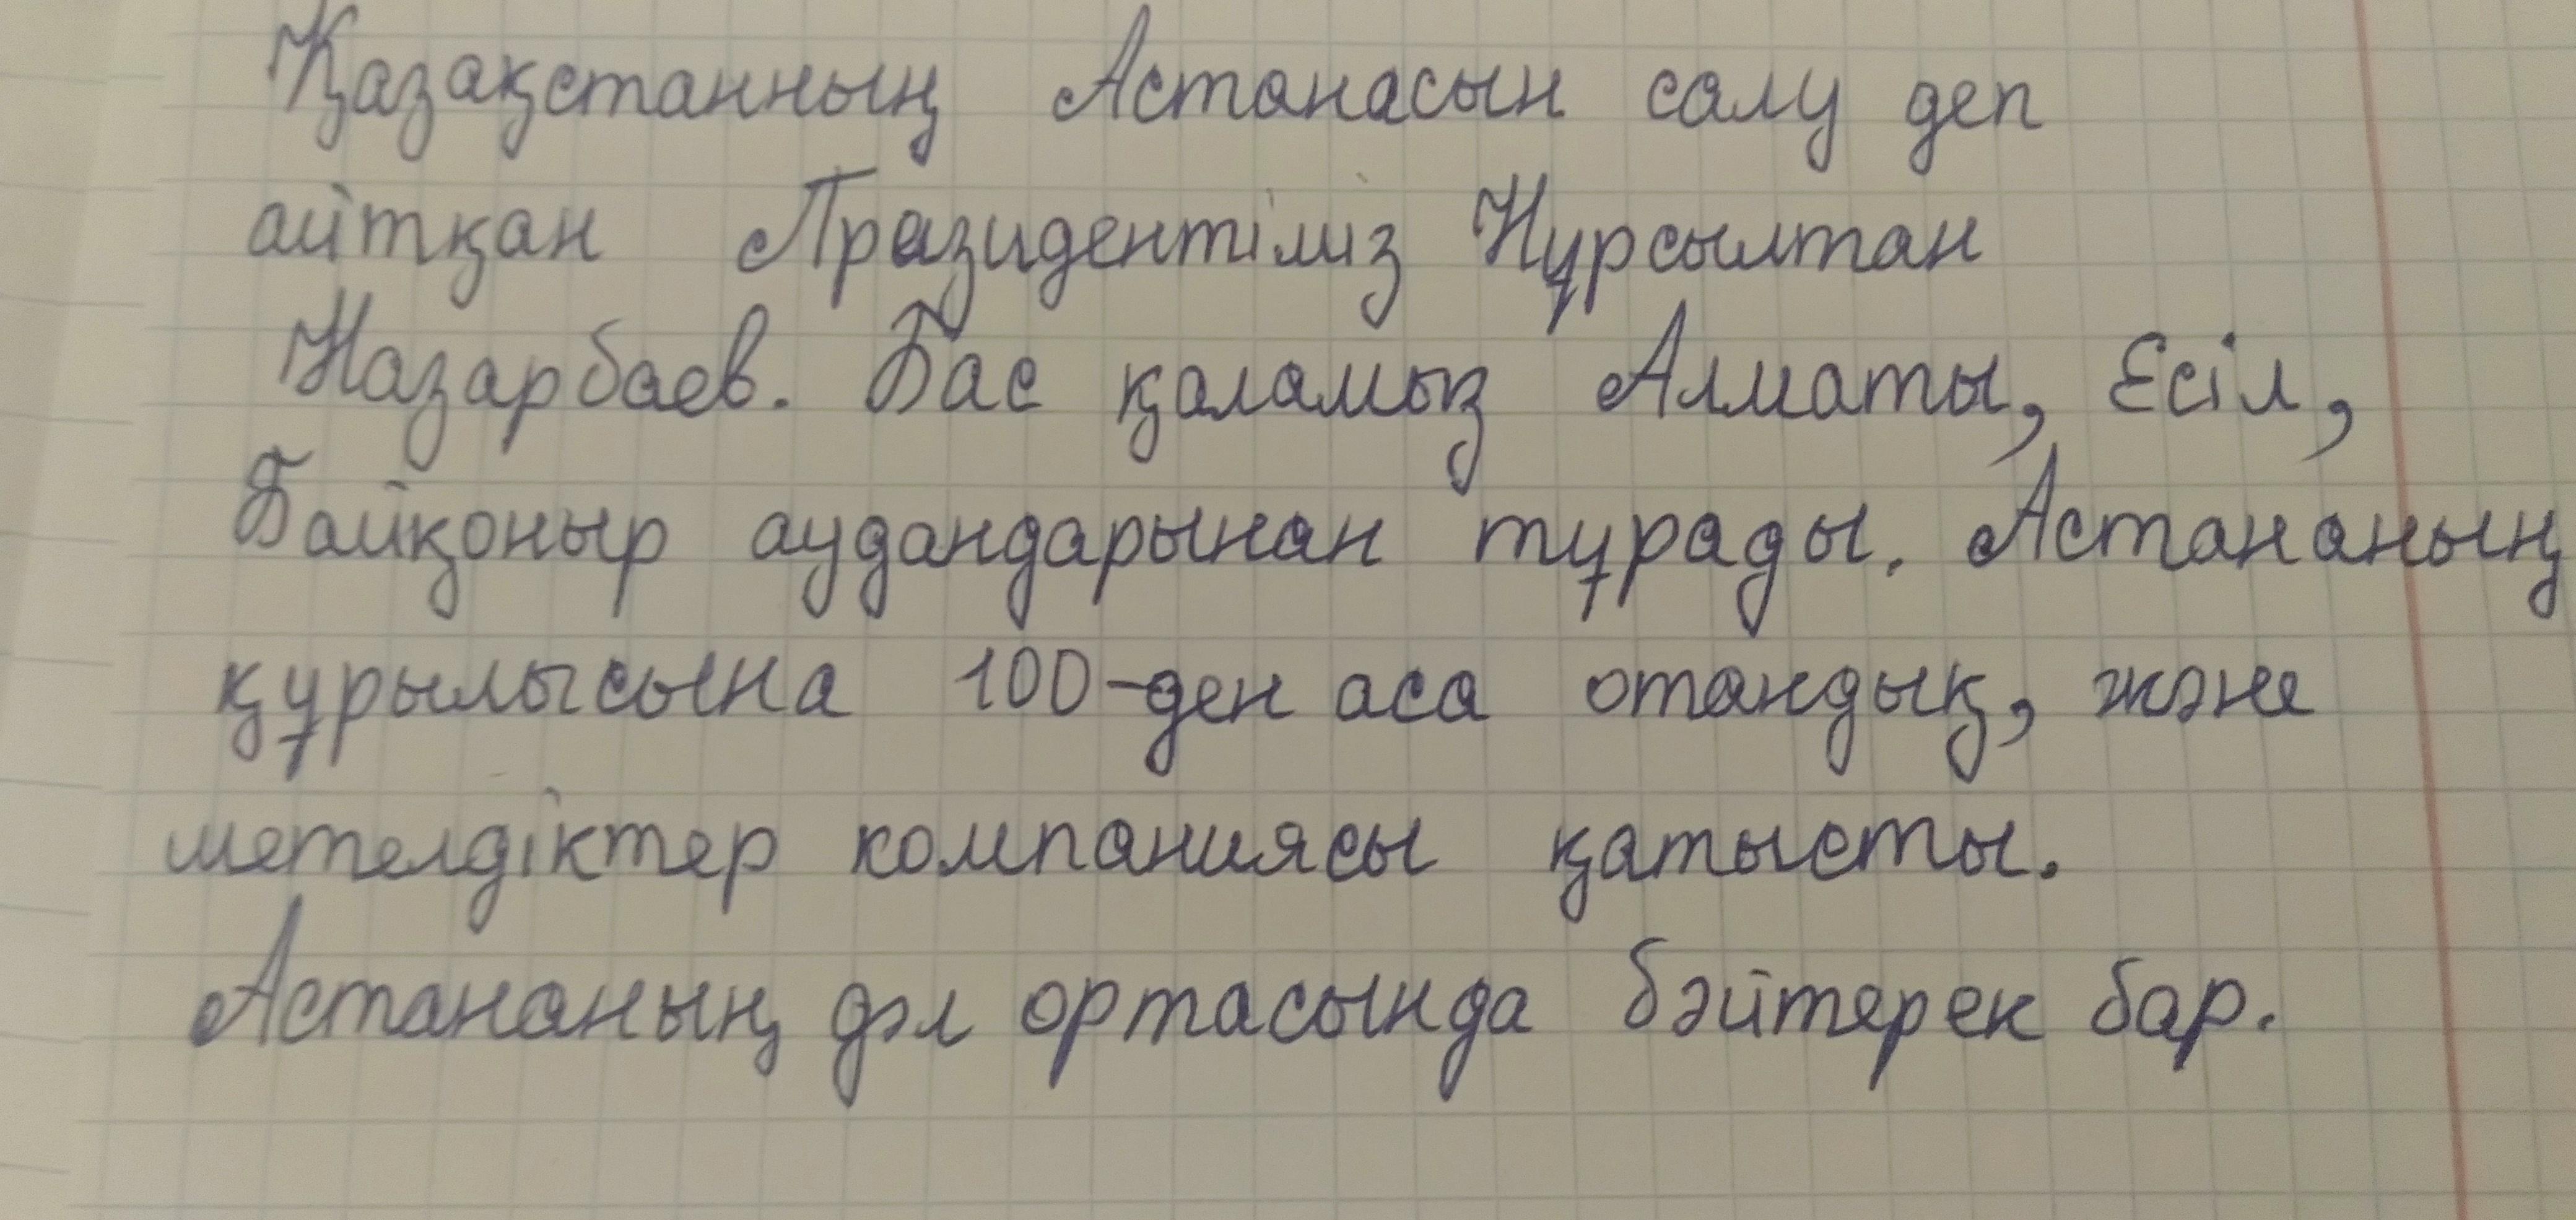 Қазақстанның Астанасын салу деп
айтқан Празидентіміз Нұрсылтан
Назарбаев. Бас қаламыз Алматы, Есіл,
Байқоныр аудандарынан тұрады. Астананың
құрылысына 100-ден аса отандық, және
шетелдіктер компаниясы қатысты.
Астананың дәл ортасында бәйтерек бар.